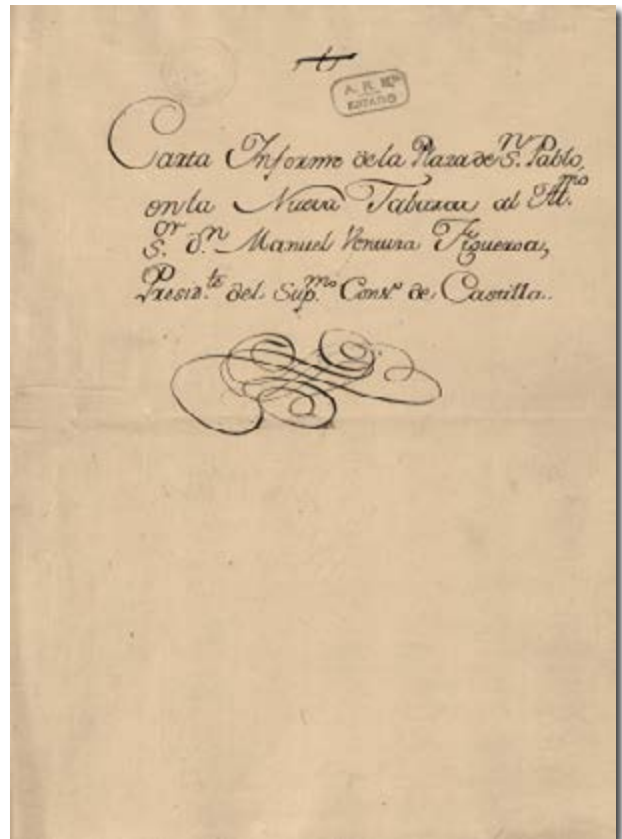 A. H. Nˡ
ESTADO
Carta Informe de la Plaza de S.ⁿ Pablo,
en la Nueva Tabarca al Ill.ᵐᵒ
S.ᵒʳ d.ⁿ Manuel Ventura Figueroa,
Presid.ᵗᵉ del Sup.ᵐᵒ Cons.º de Castilla.